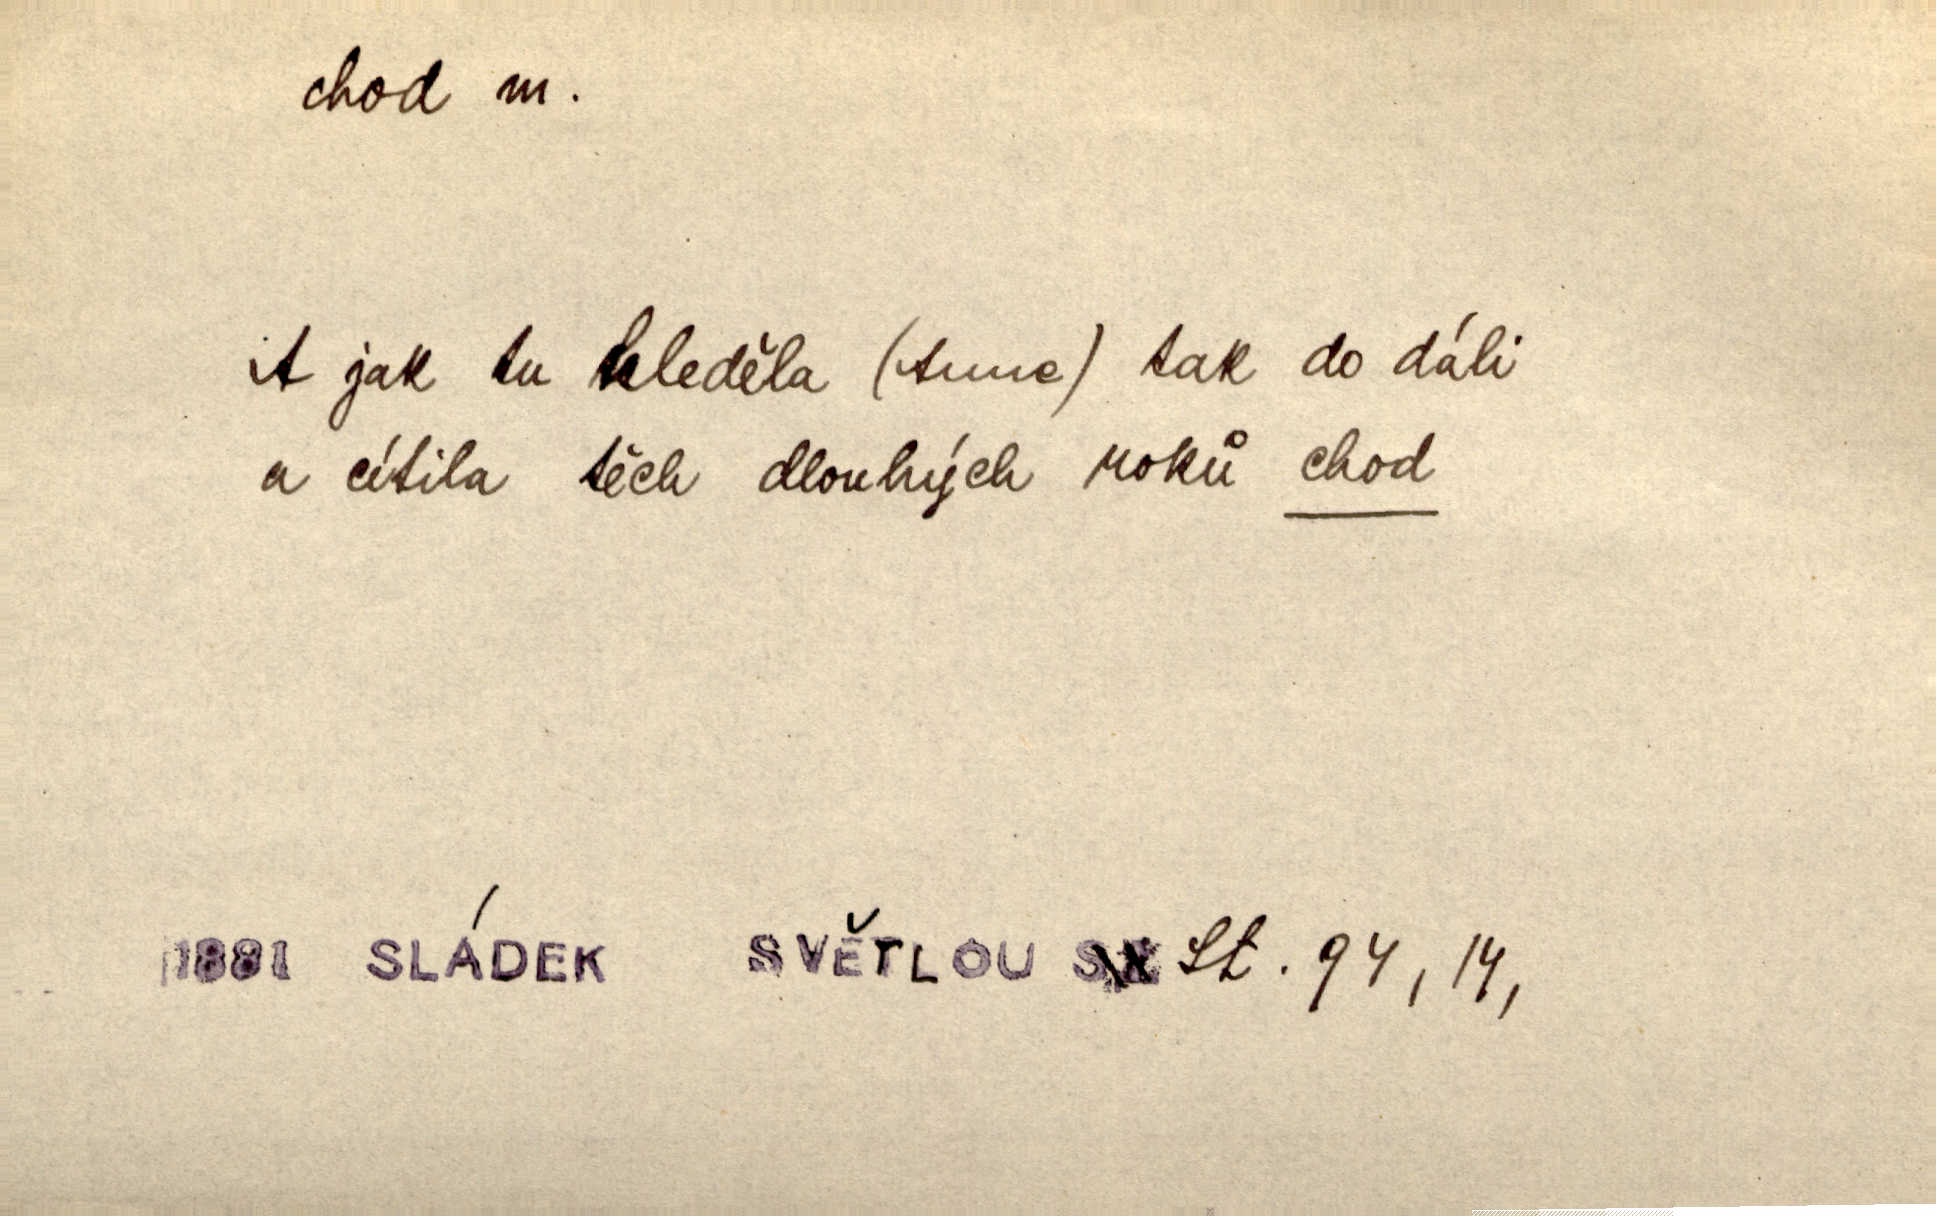 chod m.
A jak tu hleděla (Anne) tak do dáli
a cítila těch dlouhých roků chod
1881 SLÁDEK SVĚTLOU St. 94, 14,